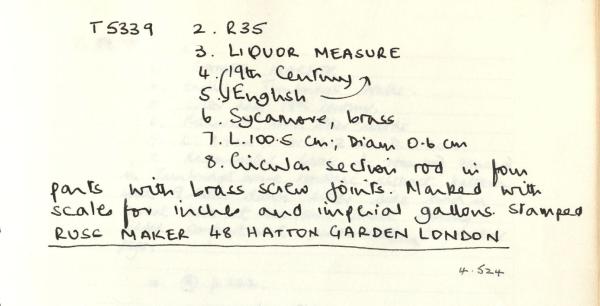 T5339 2. R35
3. LIQUOR MEASURE
4. 19th Century
5. English
6. Sycamore, brass
7. L.100.5 cm; Diam 0.6 cm
8. Circular section rod in four
parts with brass screw joints. Marked with
scales for inches and imperial gallons. Stamped
RUSC MAKER 48 HATTON GARDEN LONDON
4.524